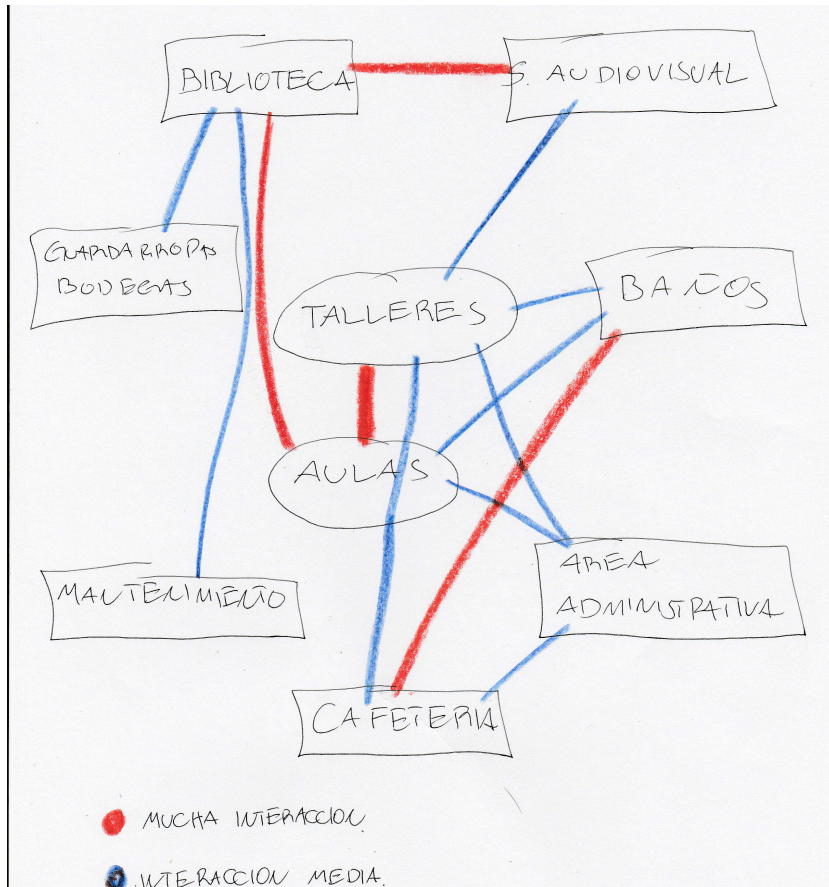 BIBLIOTECA
S. AUDIOVISUAL
GUARDARROPAS
BODEGAS
TALLERES
BAÑOS
AULAS
AREA
ADMINISTRATIVA
MANTENIMIENTO
CAFETERIA
MUCHA INTERACCION
INTERACCION MEDIA.